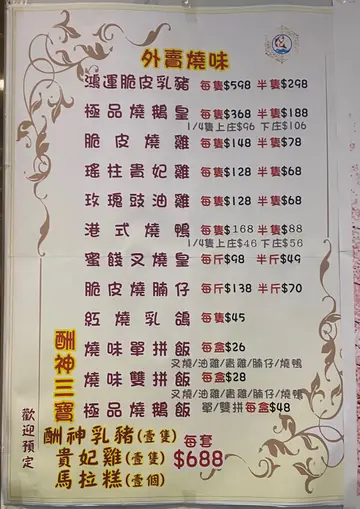 外賣燒味
鴻運脆皮乳豬 每隻$598 半隻$298
極品燒鵝皇 每隻$368 半隻$188
1/4隻上庄$96 下庄$106
脆皮燒雞 每隻$148 半隻$78
瑤柱貴妃雞 每隻$128 半隻$68
玫瑰豉油雞 每隻$128 半隻$68
港式燒鴨 每隻$168 半隻$88
1/4隻上庄$46 下庄$56
蜜餞叉燒皇 每斤$98 半斤$49
脆皮燒腩仔 每斤$138 半斤$70
紅燒乳鴿 每隻$45
燒味單拼飯 每盒$26
叉燒/油雞/貴雞/腩仔/燒鴨
燒味雙拼飯 每盒$28
叉燒/油雞/貴雞/腩仔/燒鴨
極品燒鵝飯 單/雙拼每盒$48
酬神三寶
酬神乳豬(壹隻)
貴妃雞(壹隻)
馬拉糕(壹個)
每套
$688
歡迎預定